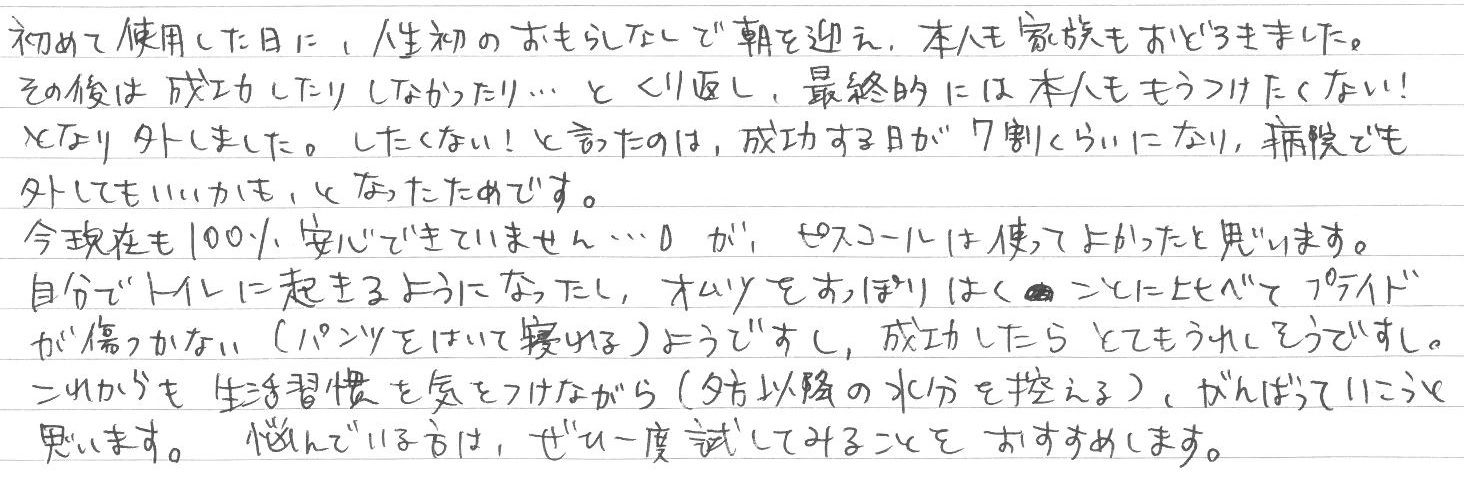 初めて使用した日に、人生初のおもらしなしで朝を迎え、本人も家族もおどろきました。
その後は成功したりしなかったり…とくり返し、最終的には本人ももうつけたくない!
となり外しました。したくない!と言ったのは、成功する日が7割くらいになり、病院でも
外してもいいかも、となったためです。
今現在も100%安心できていません…。が、ピスコールは使ってよかったと思います。
自分でトイレに起きるようになったし、オムツをすっぽりはくことに比べてプライド
が傷つかない(パンツをはいて寝れる)ようですし、成功したらとてもうれしそうですし。
これからも生活習慣を気をつけながら(夕方以降の水分を控える)、がんばっていこうと
思います。 悩んでいる方は、ぜひ一度試してみることをおすすめします。